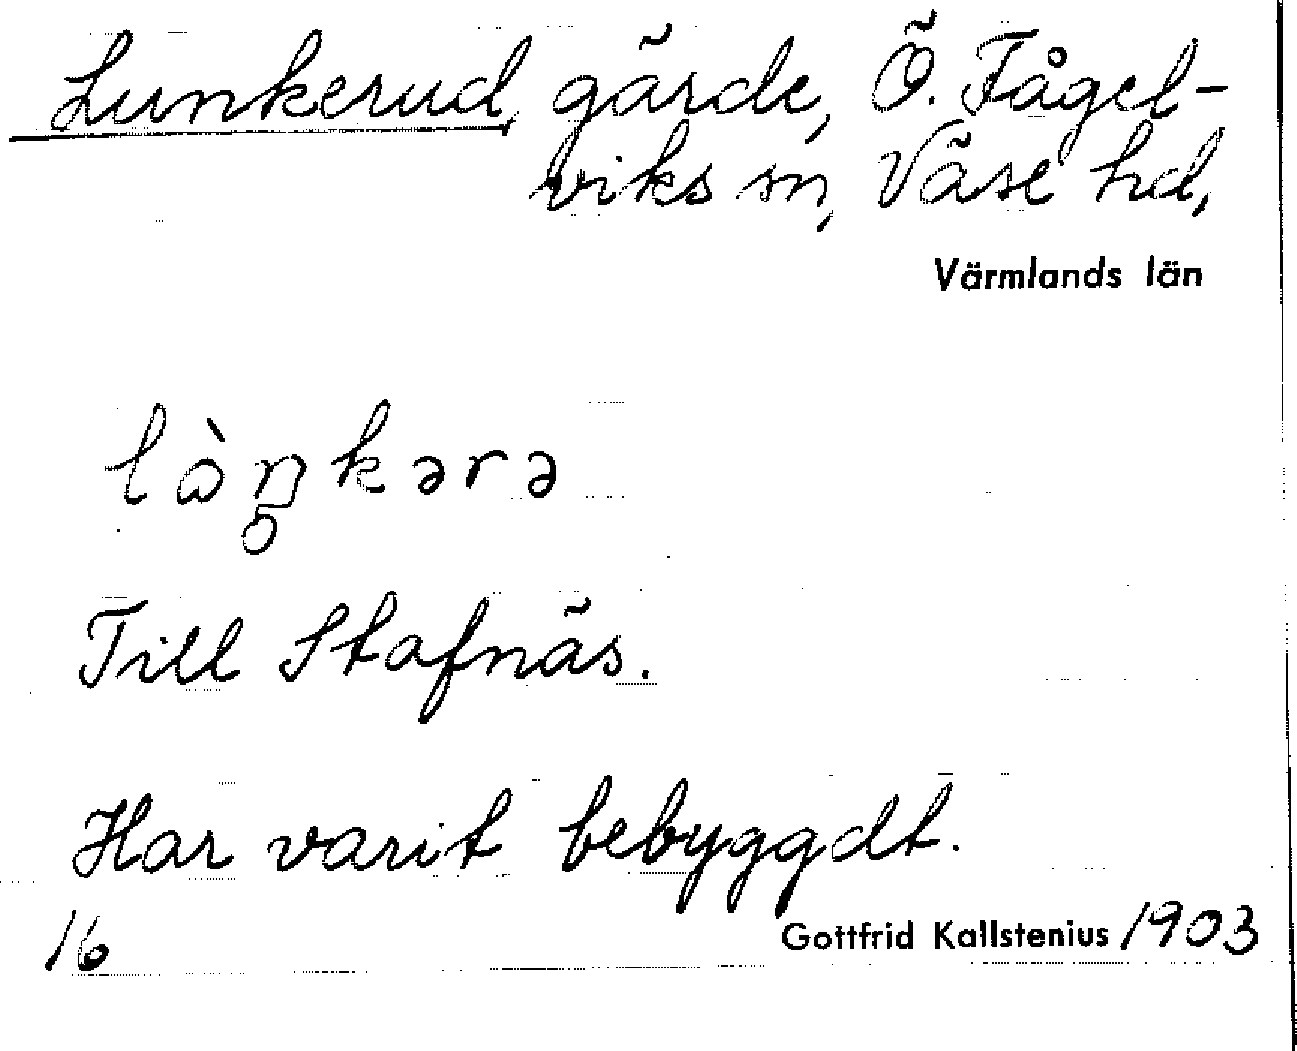 Lunkerud, gärde, Ö. Fågel-
viks sn, Väse hd,
Värmlands län
Till Stafnäs.
Har varit bebyggdt.
16 Gottfrid Kallstenius 1903